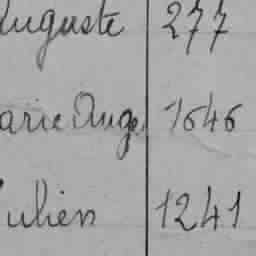 Auguste 277
arie Ange 1646
ulien 1241